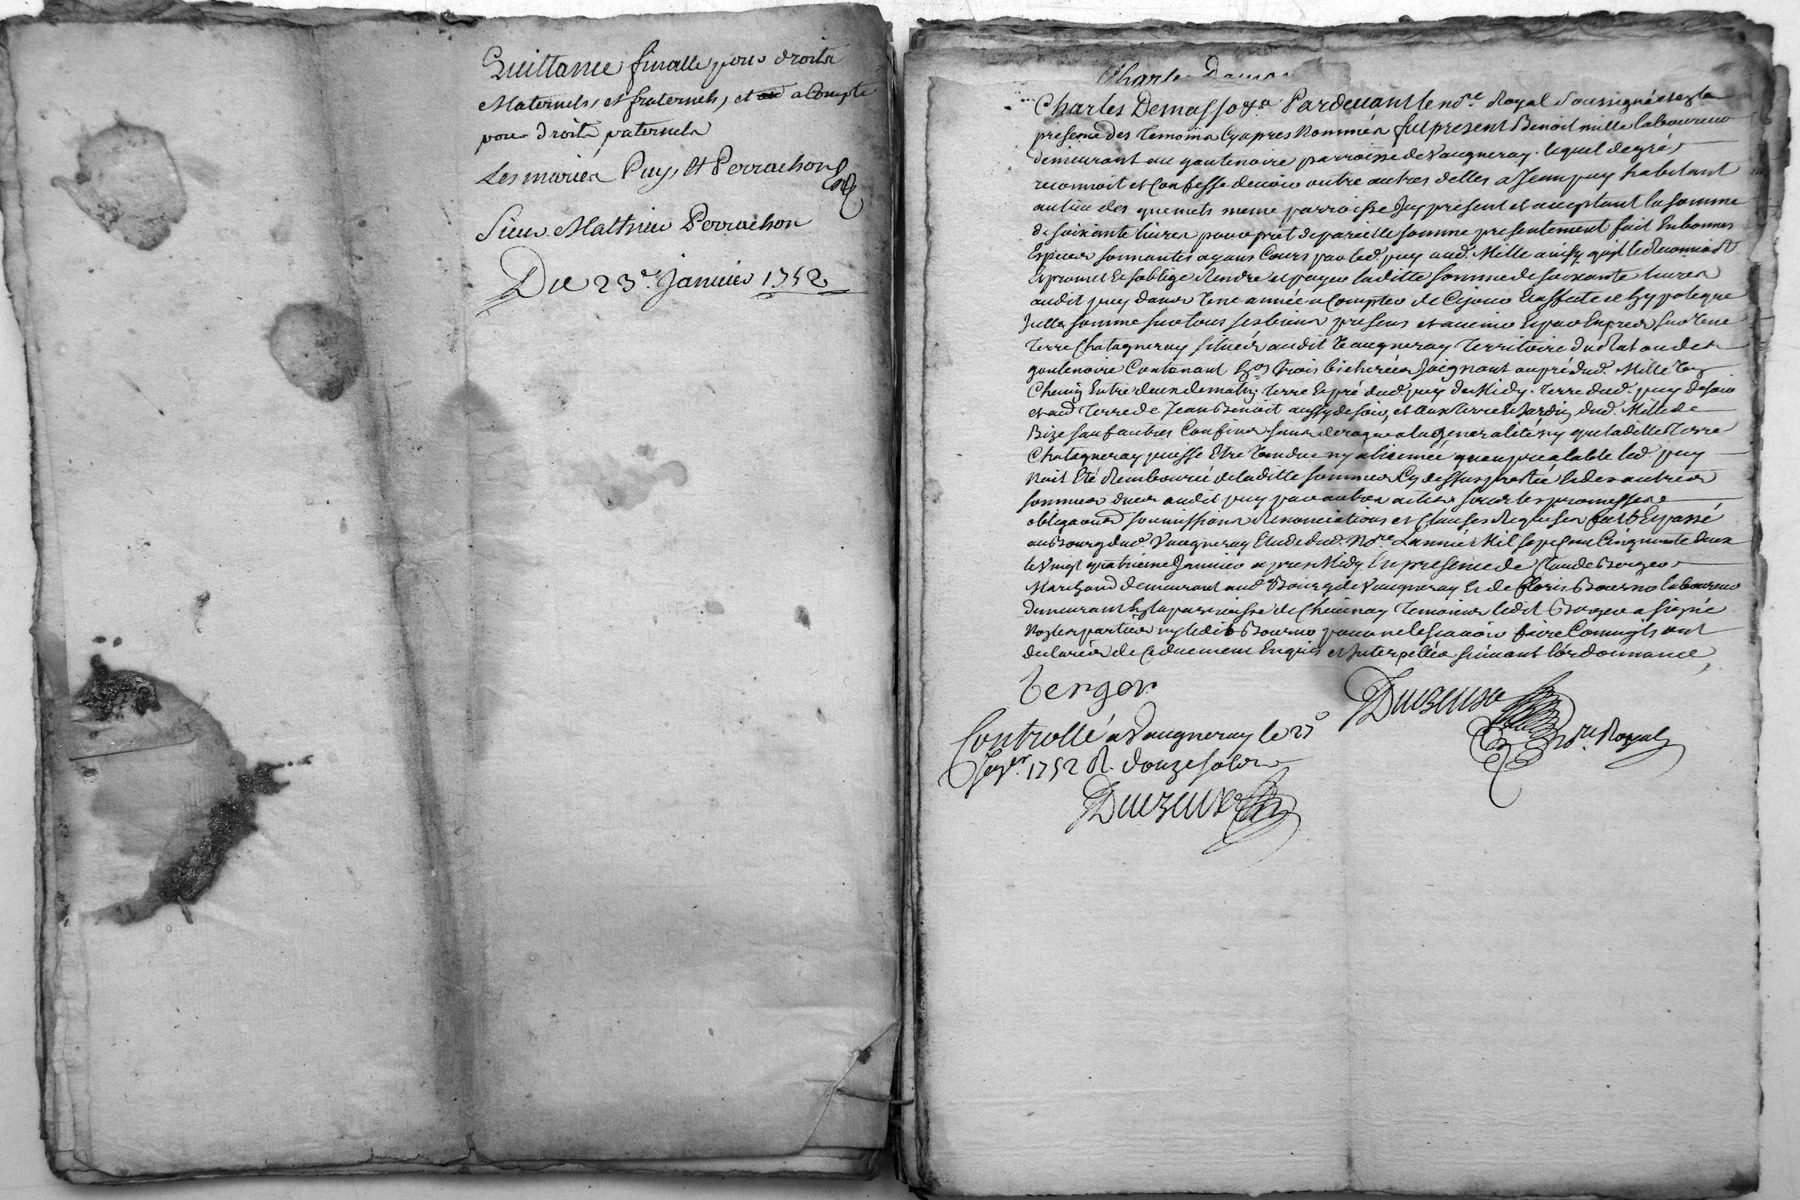 Quittance finalle pour droits
Maternels, et fraternels, et a Compte
pour droits paternels
Les mariés Puy, et Perrachon
Sieur Mathieu Perrachon
Du 23e. Janvier 1752
Charles Demas
Charles Demasso &a Pardevant le nore. Royal Soussigné et en la
présence des Temoins Cy apres Nommés fut present Benoit mille laboureur
demeurant au gouttenoire parroisse de Vaugneray. lequel de gré
reconnoit et Confesse devoir outre autres dettes a Jean puy habitant
au lieu des quemets meme parroisse Icy présent et acceptant la somme
de soixante livres pour prêt de pareille somme presentement fait En bonnes
Especes sonnantes ayans Cours par led. puy aud. Mille ainsy qu'il le Reconnoit
Et promet Et s'oblige Rendre et payer laditte somme de soixante livres
audit puy dans Une année a Compter de Cejour Et affecte et hypoteque
Jcelle somme sur tous ses biens presens et avenir Et par Exprés sur Une
Terre Chatagneray située audit Vaugneray Territoire du
goutenoire Contenant trois bicherées Joignant au pré dud. Mille
Chemin Entre deux de matin, terre Et pré dud. puy de Midy. terre dud. puy de soir
et aud. Terre de Jean Benoit aussy de soir, et aux terre Et Jardin dud. Mille de
Bize sauf autres Confins sans deroger a la generalité ny que laditte Terre
Chatagneray puisse Etre Vendue ny alienée qu'au prealable led. puy
Nait Eté Remboursé de laditte somme Cy dessus prestée Et des autres
sommes dues audit puy par autres actes sous les promesses
obligaons. soumissions Renonciations et Clauses Requises fait Et passé
au Bourg dud. Vaugneray Etude dud. Nore. L'année Mil sept Cent Cinquante deux
le Vingt quatrieme Janvier apres Midy En presence de Claude Berger
Marchand demeurant aud. Bourg de Vaugneray Et de fleris Bourno laboureur
demeurant En la parroisse de Chevinay Temoins ledit Berger a signé
Non les parties ny ledit Bourno pour ne le sçavoir faire Comme ils ont
declarés de Ce duement Enquis et Interpellés suivant l'ordonnance,
Berger
Duezeuse
nore. Royal
Controllé a Vaugneray le 27
Janer. 1752 R. douze sols